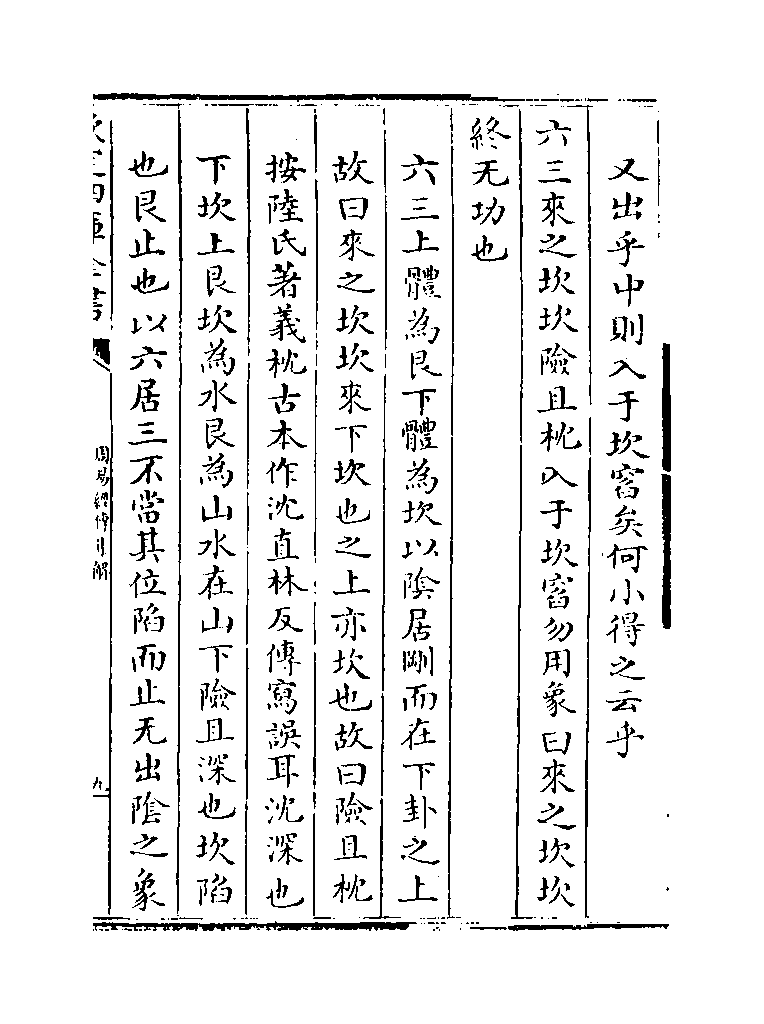 又出乎中則入于坎窞矣何小得之云乎
六三來之坎坎險且枕入于坎窞勿用象曰來之坎坎
終无功也
六三上體為艮下體為坎以隂居剛而在下卦之上
故曰來之坎坎來下坎也之上亦坎也故曰險且枕
按陸氏著義枕古本作沈直林反傳寫誤耳沈深也
下坎上艮坎為水艮為山水在山下險且深也坎陷
也艮止也以六居三不當其位陷而止无出隂之象
欽定四庫全書
周易經傳集解
九